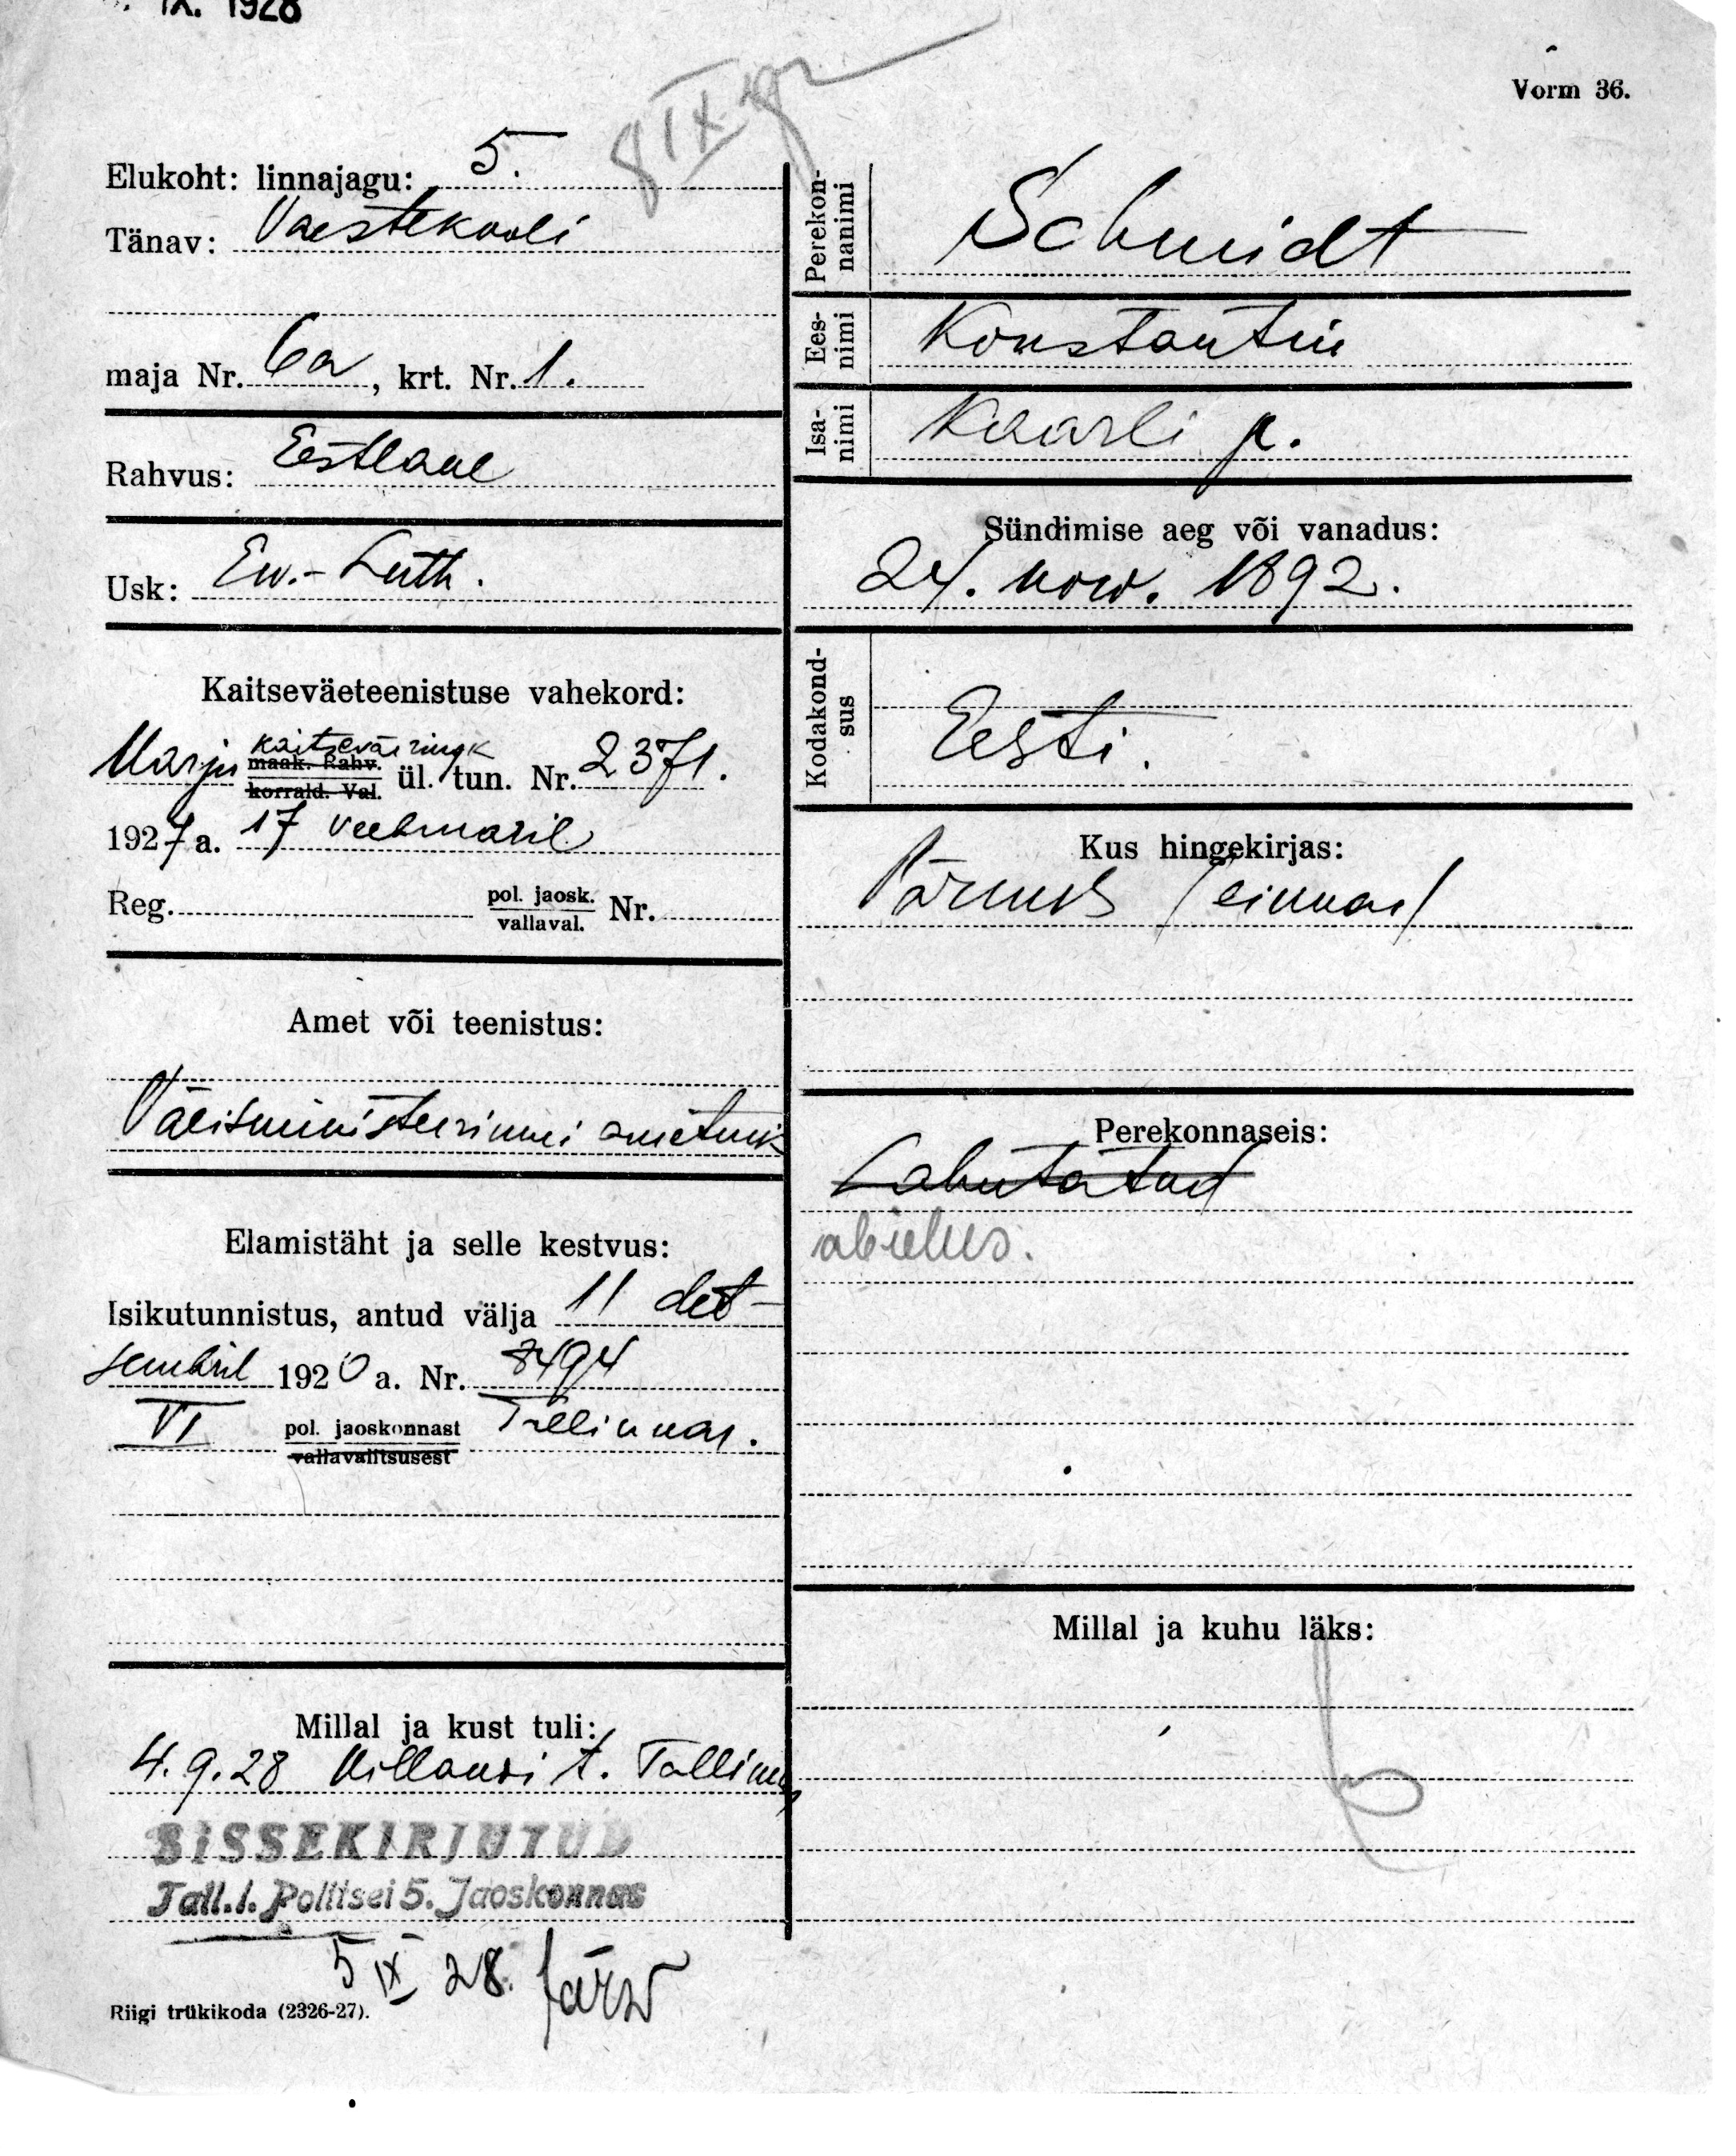 IX. 1928
8 IX
Vorm 36.
Elukoht: linnajagu: 5.
Tänav: Vaestekooli
maja Nr. 6a, krt. Nr. 1.
Rahvus: Eestlane
Usk: Ew.-Luth.
Kaitseväeteenistuse vahekord:
kaitseväeringk
Harju maak. Rahv. korrald. Val. ül. tun. Nr. 2371.
1927 a. 17 veebruaril
Reg. pol. jaosk. vallaval. Nr.
Amet või teenistus:
Välisministeeriumi ametnik
Elamistäht ja selle kestvus:
Isikutunnistus, antud välja 11 det-
sembril 1920 a. Nr. 8494
VI pol. jaoskonnast Tallinnas.
vallavalitsusest
Millal ja kust tuli:
4.9.28 t. Tallinn
SISSEKIRJUTUD
Tall. l. Politsei 5. Jaoskonnas
5 IX 28. Järw
Riigi trükikoda (2326-27).
Perekonnanimi Schmidt
Eesnimi Konstantin
Isanimi Kaarli p.
Sündimise aeg või vanadus:
24. now. 1892.
Kodakondsus Eesti.
Kus hingekirjas:
Pärnus (linnas)
Perekonnaseis:
Lahutatud
abielus.
Millal ja kuhu läks: